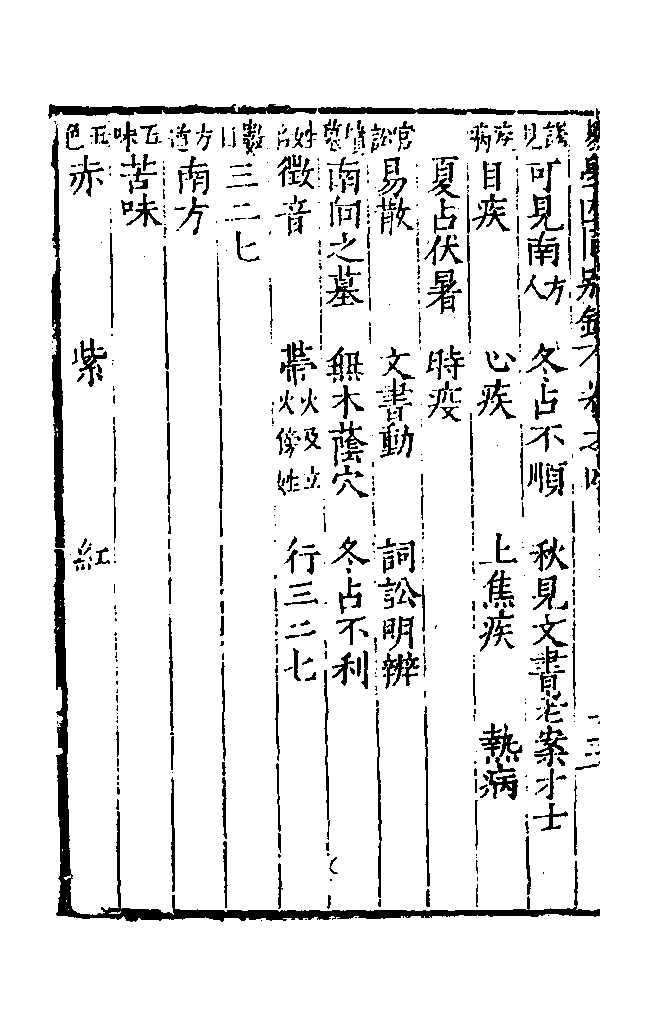 易學四同別錄
謁見 可見南方人 冬占不順 秋見文書老案才士
疾病 目疾 心疾 上焦疾 熱病
夏占伏暑 時疫
官訟 易散 文書動 詞訟明辨
墳墓 南向之墓 無木蔭穴 冬占不利
姓名 徵音 帶火及立火傍姓 行三二七
數目 三二七
方道 南方
五味 苦味
五色 赤 紫 紅